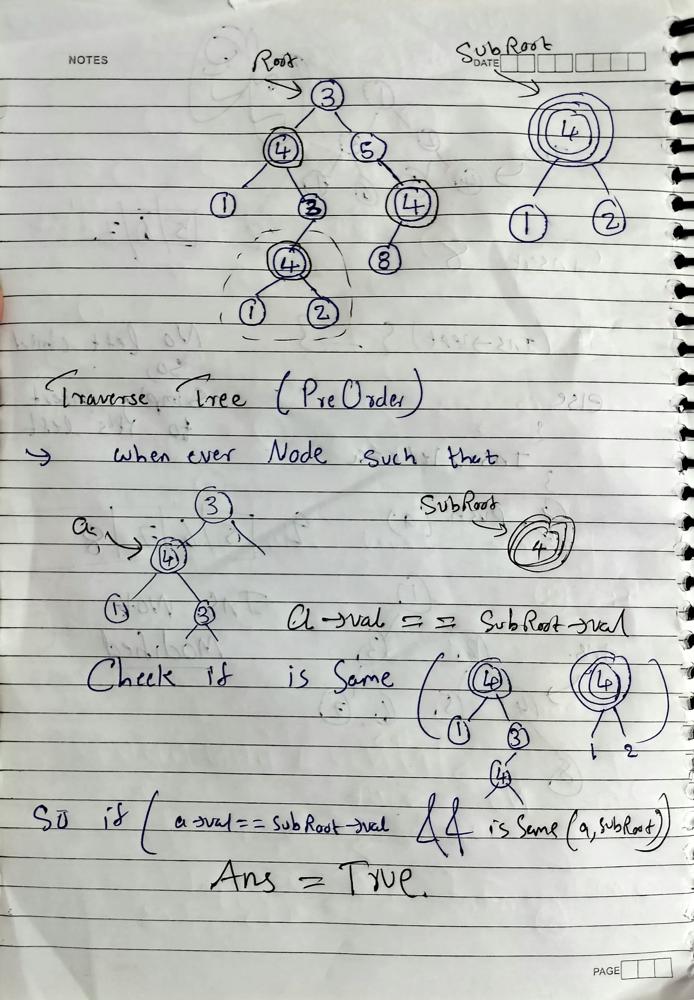 NOTES
Root
SubRoot
DATE
3
4
4 5
1 3 4
1 2
4 8
1 2
Traverse Tree (PreOrder)
→ when ever Node such that
3
SubRoot
a
4
4
1 3
a→val == SubRoot→val
Check if is Same ( 4 4 )
1 3
1 2
4
So if ( a→val == SubRoot→val && is Same (a, SubRoot))
Ans = True.
PAGE